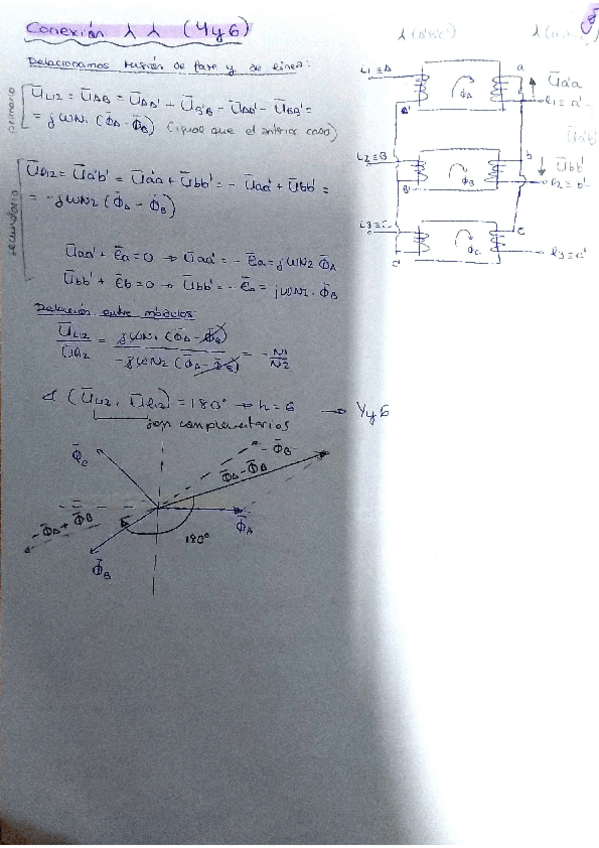 Conexión ⅄ ⅄ (Yy6)
Relacionamos tensión de fase y de línea:
primario
U̅L12 = U̅AB = U̅AA' + U̅B'B = U̅AA' - U̅BB' =
= jωN1 (Φ̅A - Φ̅B) (igual que el anterior caso)
secundario
U̅l12 = U̅a'b' = U̅a'a + U̅bb' = - U̅aa' + U̅bb' =
= -jωN2 (Φ̅A - Φ̅B)
U̅aa' + e̅a = 0 → U̅aa' = - e̅a = jωN2 Φ̅A
U̅bb' + e̅b = 0 → U̅bb' = - e̅a = jωN2 · Φ̅B
Relación entre módulos
U̅L12 / U̅l12 = jωN1 (Φ̅A - Φ̅B) / -jωN2 (Φ̅A - Φ̅B) = - N1/N2
∢ (U̅L12, U̅l12) = 180° → h = 6 → Yy6
son complementarios
Φ̅C
-Φ̅B
Φ̅A - Φ̅B
-Φ̅A + Φ̅B
Φ̅A
180°
Φ̅B
L1 ≡ A
A'
ΦA
a
U̅a'a
l1 ≡ a'
L2 ≡ B
B'
ΦB
b
U̅bb'
l2 ≡ b'
L3 ≡ C
C'
ΦC
c
l3 ≡ c'